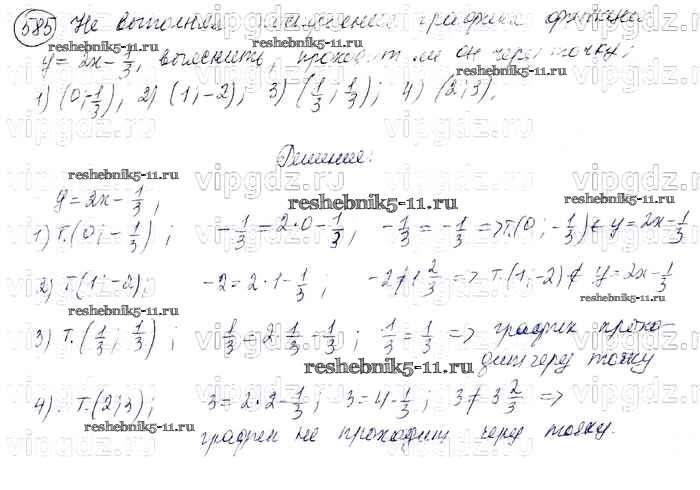 585) Не выполняя построения графика функции
y = 2x - 1/3, выяснить, проходит ли он через точку:
1) (0; -1/3); 2) (1; -2); 3) (1/3; 1/3); 4) (2; 3).
Решение:
y = 2x - 1/3;
1) т.(0; -1/3); -1/3 = 2·0 - 1/3; -1/3 = -1/3 => т.(0; -1/3) ∈ y = 2x - 1/3
2) т.(1; -2); -2 = 2·1 - 1/3; -2 ≠ 1 2/3 => т.(1; -2) ∉ y = 2x - 1/3
3) т.(1/3; 1/3); 1/3 = 2·1/3 - 1/3; 1/3 = 1/3 => график прохо-
дит через точку
4). т.(2; 3); 3 = 2·2 - 1/3; 3 = 4 - 1/3; 3 ≠ 3 2/3 =>
график не проходит через точку.
reshebnik5-11.ru
vipgdz.com